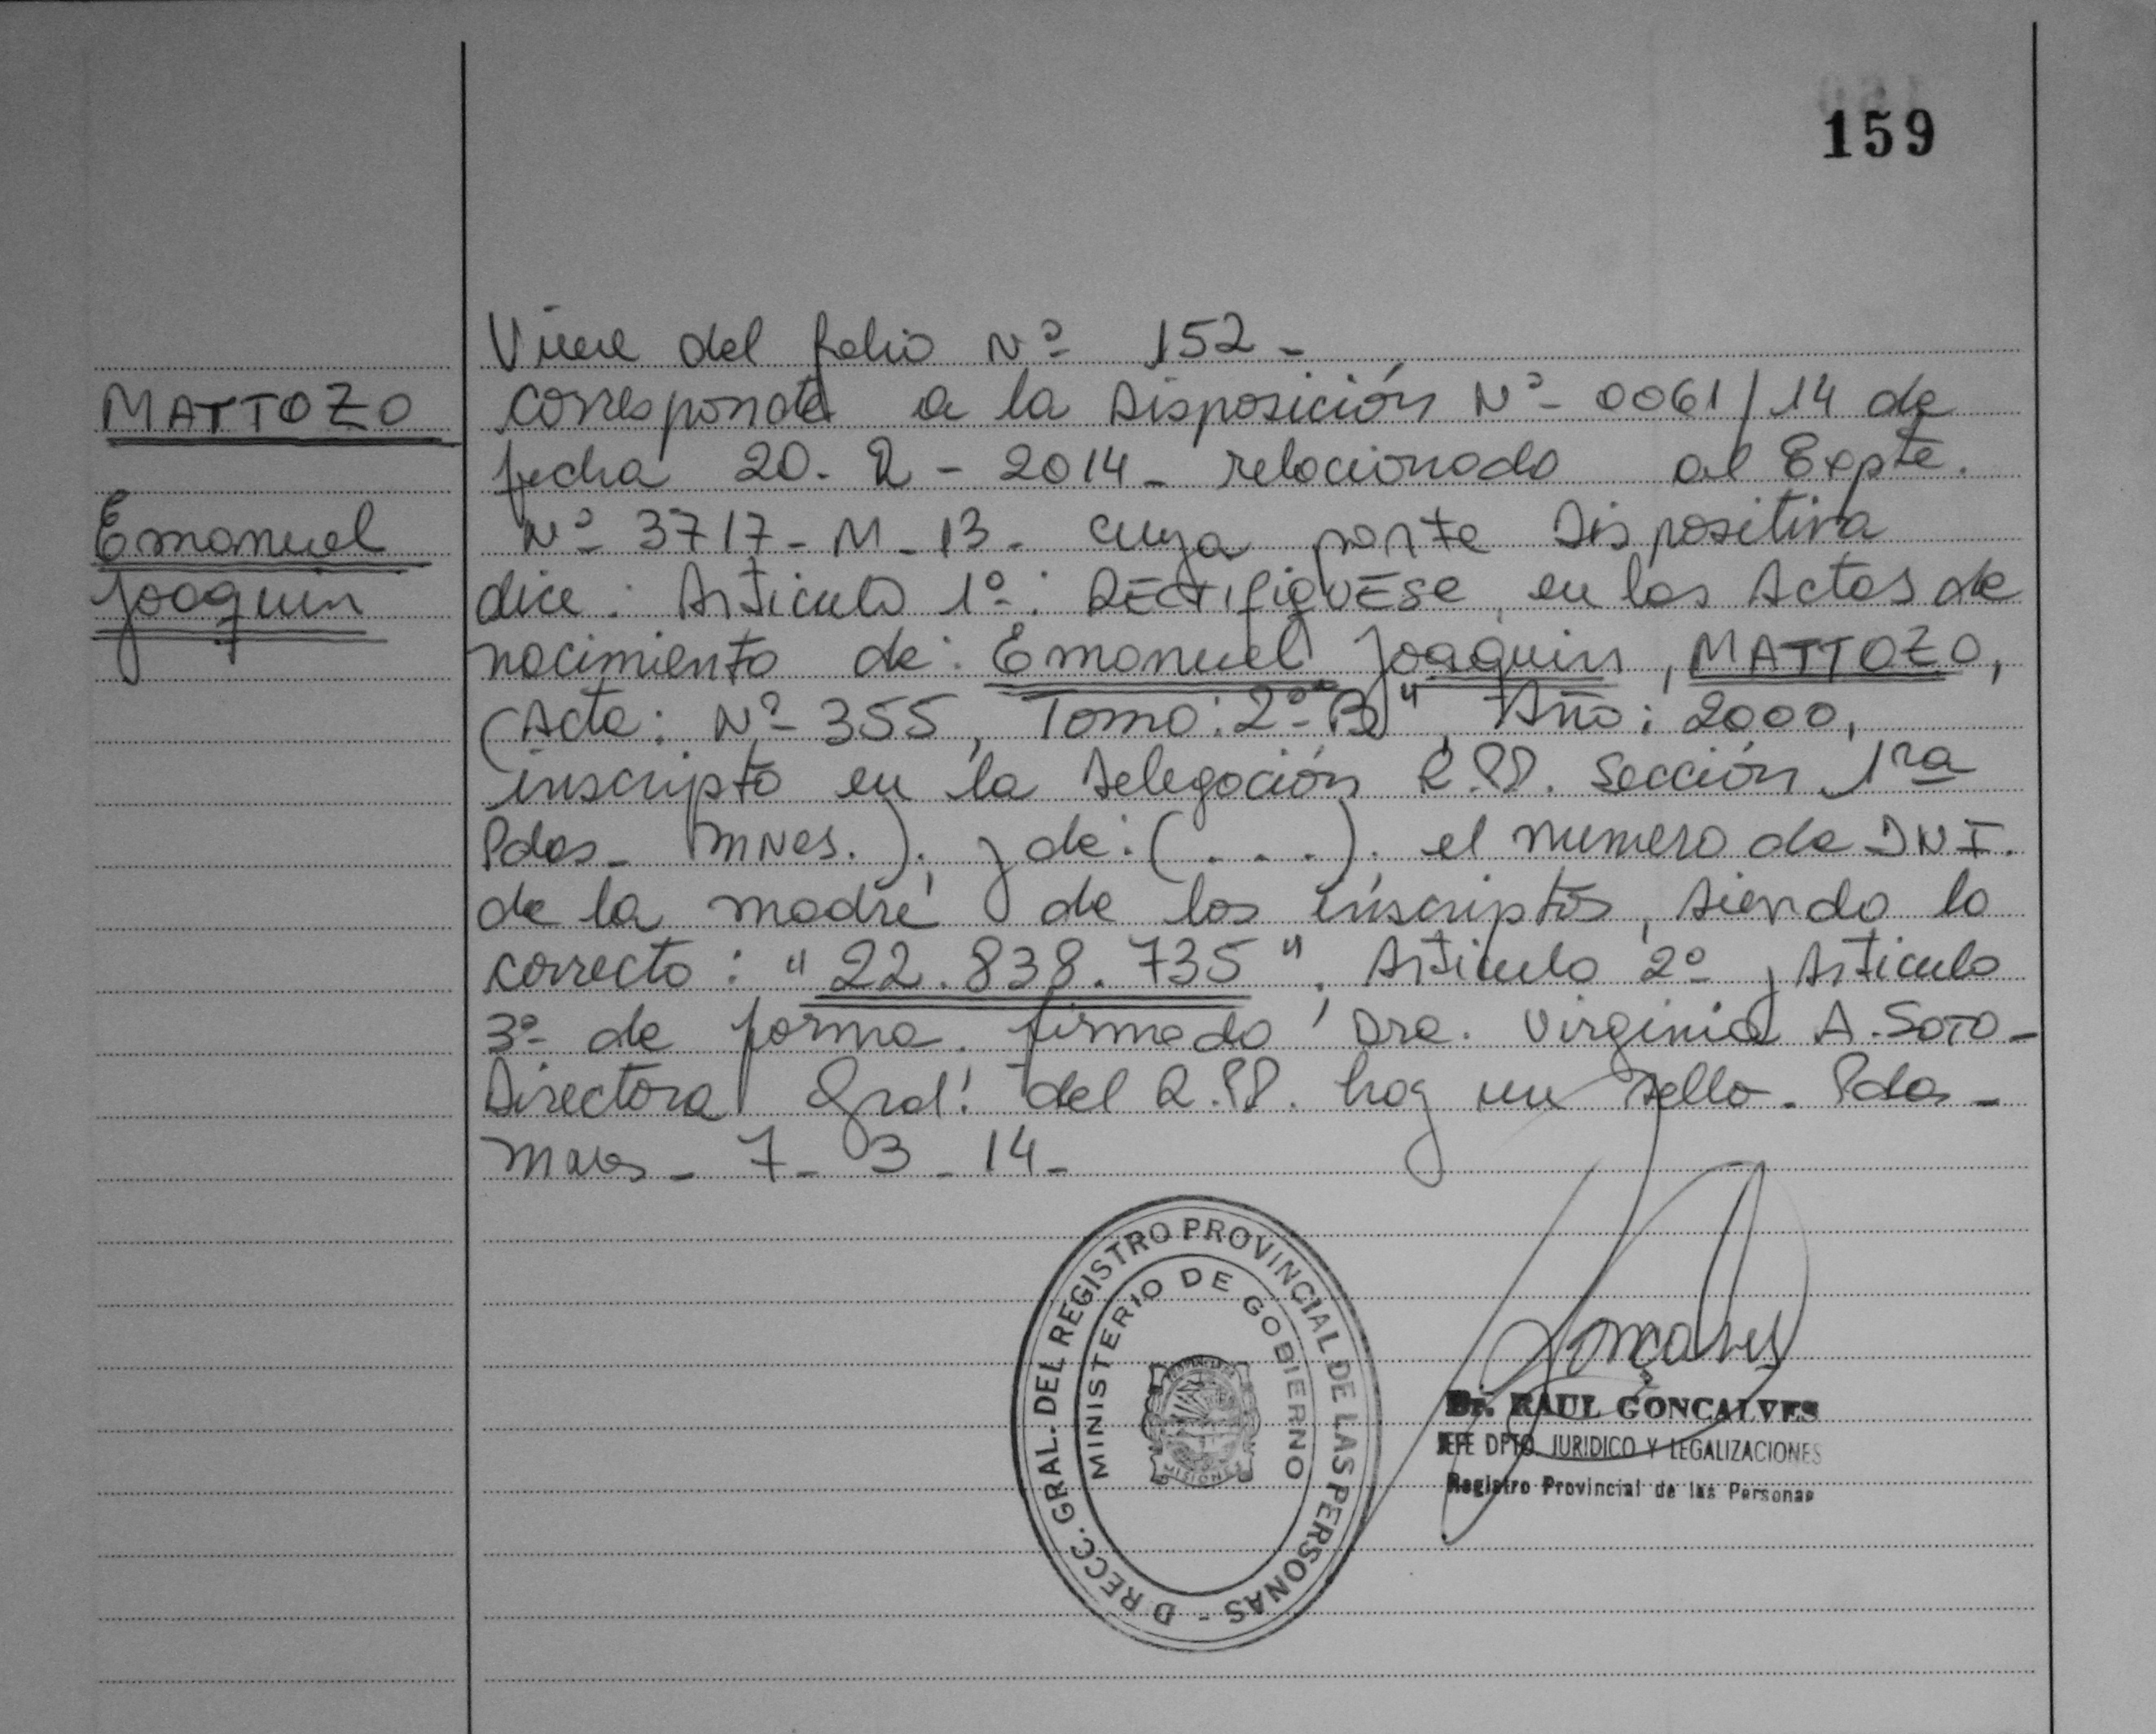 159
MATTOZO
Emanuel
Joaquin
Viene del folio Nº 152 -
corresponde a la Disposición Nº 0061/14 de
fecha 20. 2 - 2014 - relacionado al Expte.
Nº 3717 - M - 13 - cuya parte Dispositiva
dice: Articulo 1º: RECTIFIQUESE, en las Actas de
nacimiento de: Emanuel Joaquin, MATTOZO,
(Acta: Nº 355, Tomo: 2º "B", Año: 2000,
inscripto en la Delegación R.PP. Sección 1ra
Pdas - MNes.). y de: (. . .). el numero de DNI.
de la madre de los inscriptos, siendo lo
correcto: "22.838.735". Articulo 2º y Articulo
3º de forma. firmado Dra. Virginia A. SOTO -
Directora Gral. del R.PP. hay un sello - Pdas -
Mnes - 7 - 3 - 14 -
DIRECC. GRAL. DEL REGISTRO PROVINCIAL DE LAS PERSONAS -
MINISTERIO DE GOBIERNO
MISIONES
Gonçalves
Dr. RAUL GONCALVES
JEFE DPTO. JURIDICO Y LEGALIZACIONES
Registro Provincial de las Personas